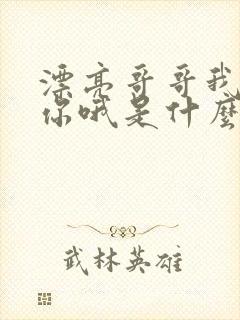 漂亮哥哥我
你哦是什麼
武林英雄